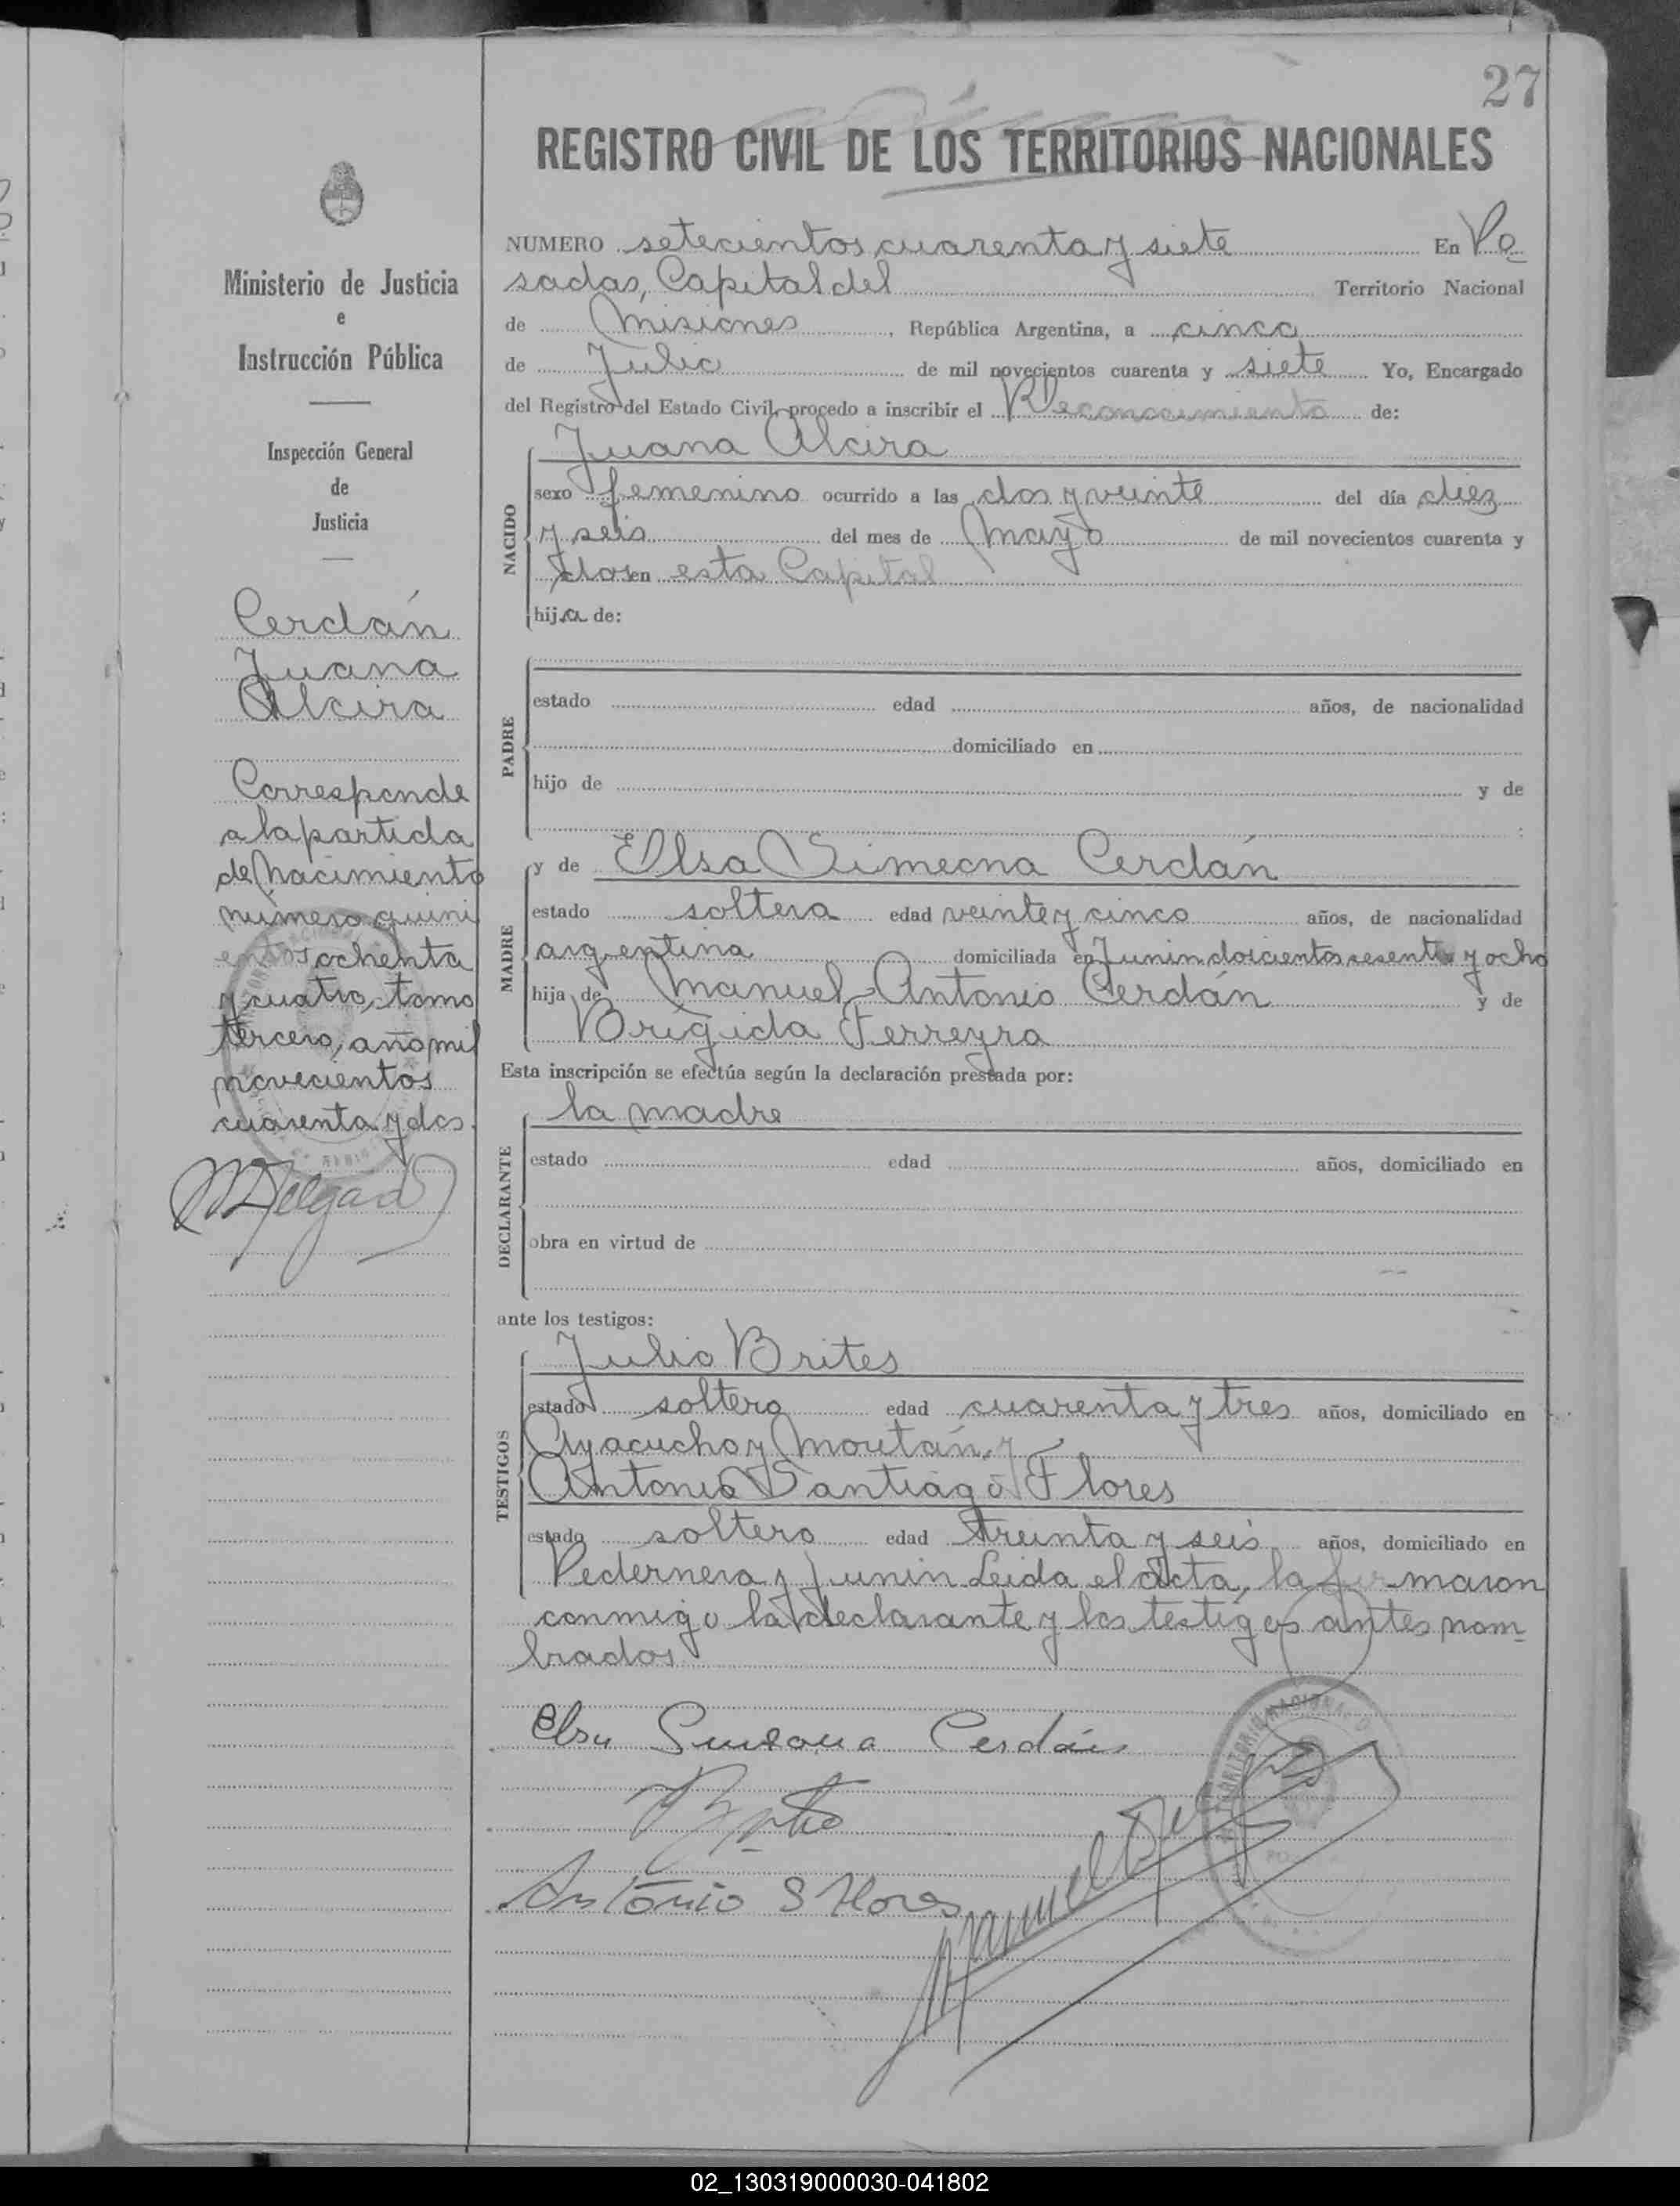 27
REGISTRO CIVIL DE LOS TERRITORIOS NACIONALES
Ministerio de Justicia
e
Instrucción Pública
Inspección General
de
Justicia
Cerdán
Juana
Alcira
Corresponde
a la partida
de Nacimiento
número quini
entos ochenta
y cuatro, tomo
tercero, año mil
novecientos
cuarenta y dos.
NUMERO setecientos cuarenta y siete En Po
sadas, Capital del Territorio Nacional
de Misiones, República Argentina, a cinco
de Julio de mil novecientos cuarenta y siete Yo, Encargado
del Registro del Estado Civil, procedo a inscribir el Reconocimiento de:
NACIDO
Juana Alcira
sexo femenino ocurrido a las dos y veinte del día diez
y seis del mes de Mayo de mil novecientos cuarenta y
dos en esta Capital
hija de:
PADRE
estado edad años, de nacionalidad
domiciliado en
hijo de y de
:
MADRE
y de Elsa Simeona Cerdán
estado soltera edad veinte y cinco años, de nacionalidad
argentina domiciliada en Junin doscientos sesenta y ocho
hija de Manuel Antonio Cerdán y de
Brígida Ferreyra
Esta inscripción se efectúa según la declaración prestada por:
DECLARANTE
la madre
estado edad años, domiciliado en
obra en virtud de
ante los testigos:
TESTIGOS
Julio Brites
estado soltero edad cuarenta y tres años, domiciliado en
Ayacucho y Moután y
Antonio Santiago Flores
estado soltero edad treinta y seis años, domiciliado en
Pedernera y Junin. Leida el acta, la firmaron
conmigo la declarante y los testigos antes nom-
brados
Elsa Cerdán
Antonio S Flores
Manuel
02_130319000030-041802